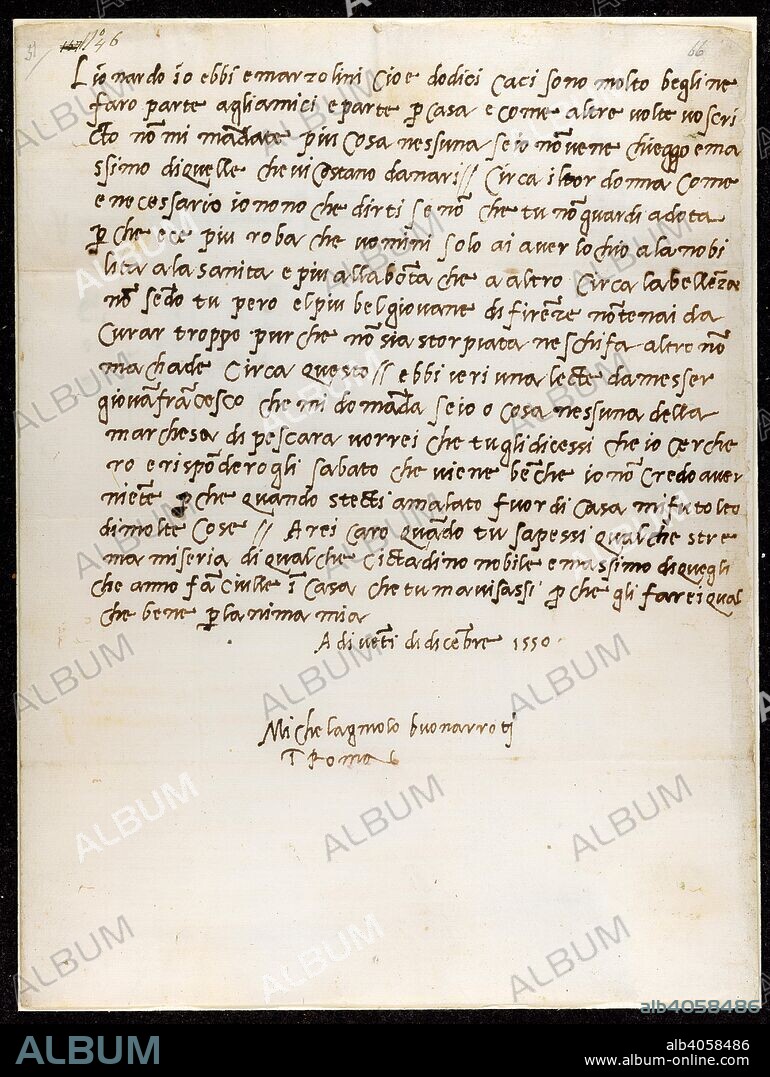 51
1546
66
Lionardo io ebbi e marzolini cioe dodici caci sono molto begli ne
faro parte agli amici e parte p casa e come altre volte vo scri
cto nō mi mādate piu cosa nessuna se io nō vene chieggo e ma
ssimo di quelle che vi costano danari // Circa il tor donna come
e necessario io nono che dirti se nō che tu nō guardi a dota
p che ece piu roba che uomini solo ai aver lochio a la nobi
lita a la sanita e piu alla bōta che a altro Circa la belleza
nō sēdo tu pero el piu bel giovane di firenze nōtenai da
curar troppo pur che nō sia storpiata ne schifa altro nō
machade circa questo // ebbi ieri una lecte da messer
giovā frācesco che mi domāda se io o cosa nessuna della
marchesa di pescara vorrei che tu gli dicessi che io cerche
ro e rispōderogli sabato che viene bēche io nō credo aver
niēte p che quando stecti amalato fuor di casa mi fu tolto
di molte cose // Arei caro quādo tu sapessi qualche stre
ma miseria di qualche cictadino nobile e massimo di quegli
che anno fāciulle ī casa che tu mavisassi p che gli farei qual
che bene p lanima mia
A di vēti di dicēbre 1550
Michelagniolo buonarroti
ī Roma
ALBUM
alb4058486
ALBUM
alb4058486
www.album-online.com